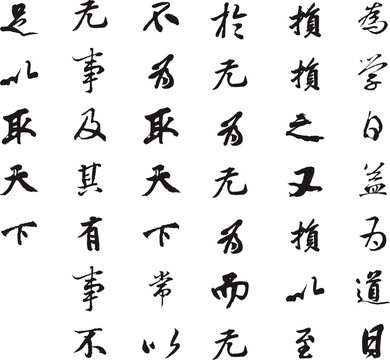 為学日益为道日
損損之又損以至
於无为无为而无
不为取天下常以
无事及其有事不
足以取天下